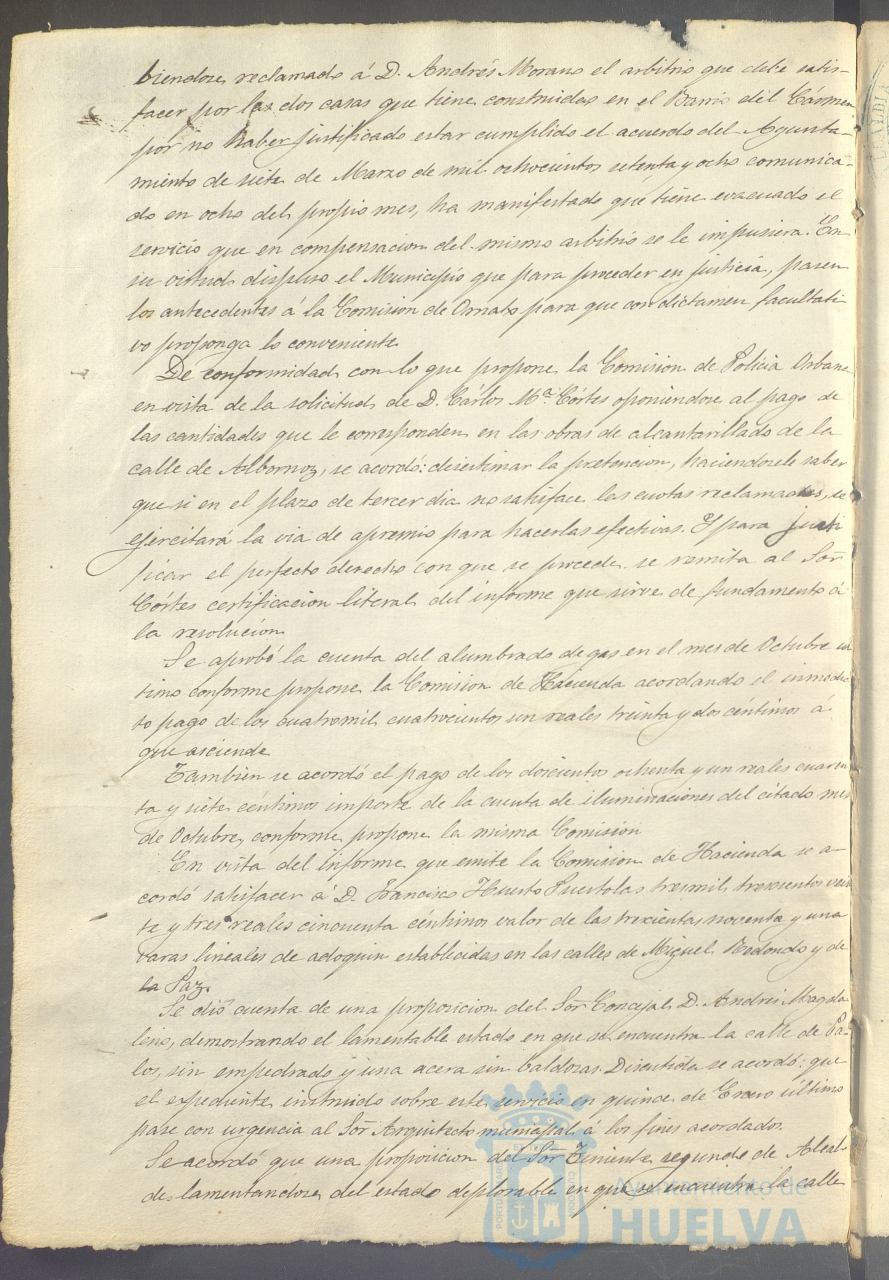 biendose reclamado á D. Andrés Morano el arbitrio que debe satis-
facer por las dos casas que tiene construidas en el Barrio del Cármen
por no haber justificado estar cumplido el acuerdo del Ayunta-
miento de siete de Marzo de mil ochocientos setenta y ocho comunica-
do en ocho del propio mes, ha manifestado que tiene evacuado el
servicio que en compensacion del mismo arbitrio se le impusiera. En
su virtud dispuso el Municipio que para proceder en justicia, pasen
los antecedentes á la Comision de Ornato para que con dictamen facultati-
vo proponga lo conveniente
De conformidad con lo que propone la Comision de Policia Urbana
en vista de la solicitud de D. Cárlos Mª Córtes oponiendose al pago de
las cantidades que le corresponden en las obras de alcantarillado de la
calle de Albornoz, se acordó: desestimar la pretencion, haciendosele saber
que si en el plazo de tercer dia no satisface las cuotas reclamadas, se
ejercitará la via de apremio para hacerlas efectivas. Y para justi
ficar el perfecto derecho con que se procede se remita al Sor
Córtes certificacion literal del informe que sirve de fundamento á
la resolucion
Se aprobó la cuenta del alumbrado de gas en el mes de Octubre úl
timo conforme propone la Comision de Hacienda acordando el inmedia
to pago de los cuatromil cuatrocientos un reales treinta y dos céntimos á
que asciende
Tambien se acordó el pago de los doscientos ochenta y un reales cuaren
ta y siete céntimos importe de la cuenta de iluminaciones del citado mes
de Octubre, conforme propone la misma Comision
En vista del informe que emite la Comision de Hacienda se a-
cordó satisfacer á D. Francisco Huerto Puertolas tresmil trescientos vein
te y tres reales cincuenta céntimos valor de las trescientas noventa y una
varas lineales de adoquin establecidas en las calles de Miguel Redondo y de
la Paz.
Se dió cuenta de una proposicion del Sor Concejal D. Andrés Magda
leno, demostrando el lamentable estado en que se encuentra la calle de Pa-
los, sin empedrado y una acera sin baldosas. Discutida se acordó: que
el expediente instruido sobre este servicio en quince de Enero último
pase con urgencia al Sor Arquitecto municipal á los fines acordados.
Se acordó que una proposicion del Sor Teniente segundo de Alcal-
de lamentandose del estado deplorable en que se encuentra la calle
Ayuntamiento de
HUELVA